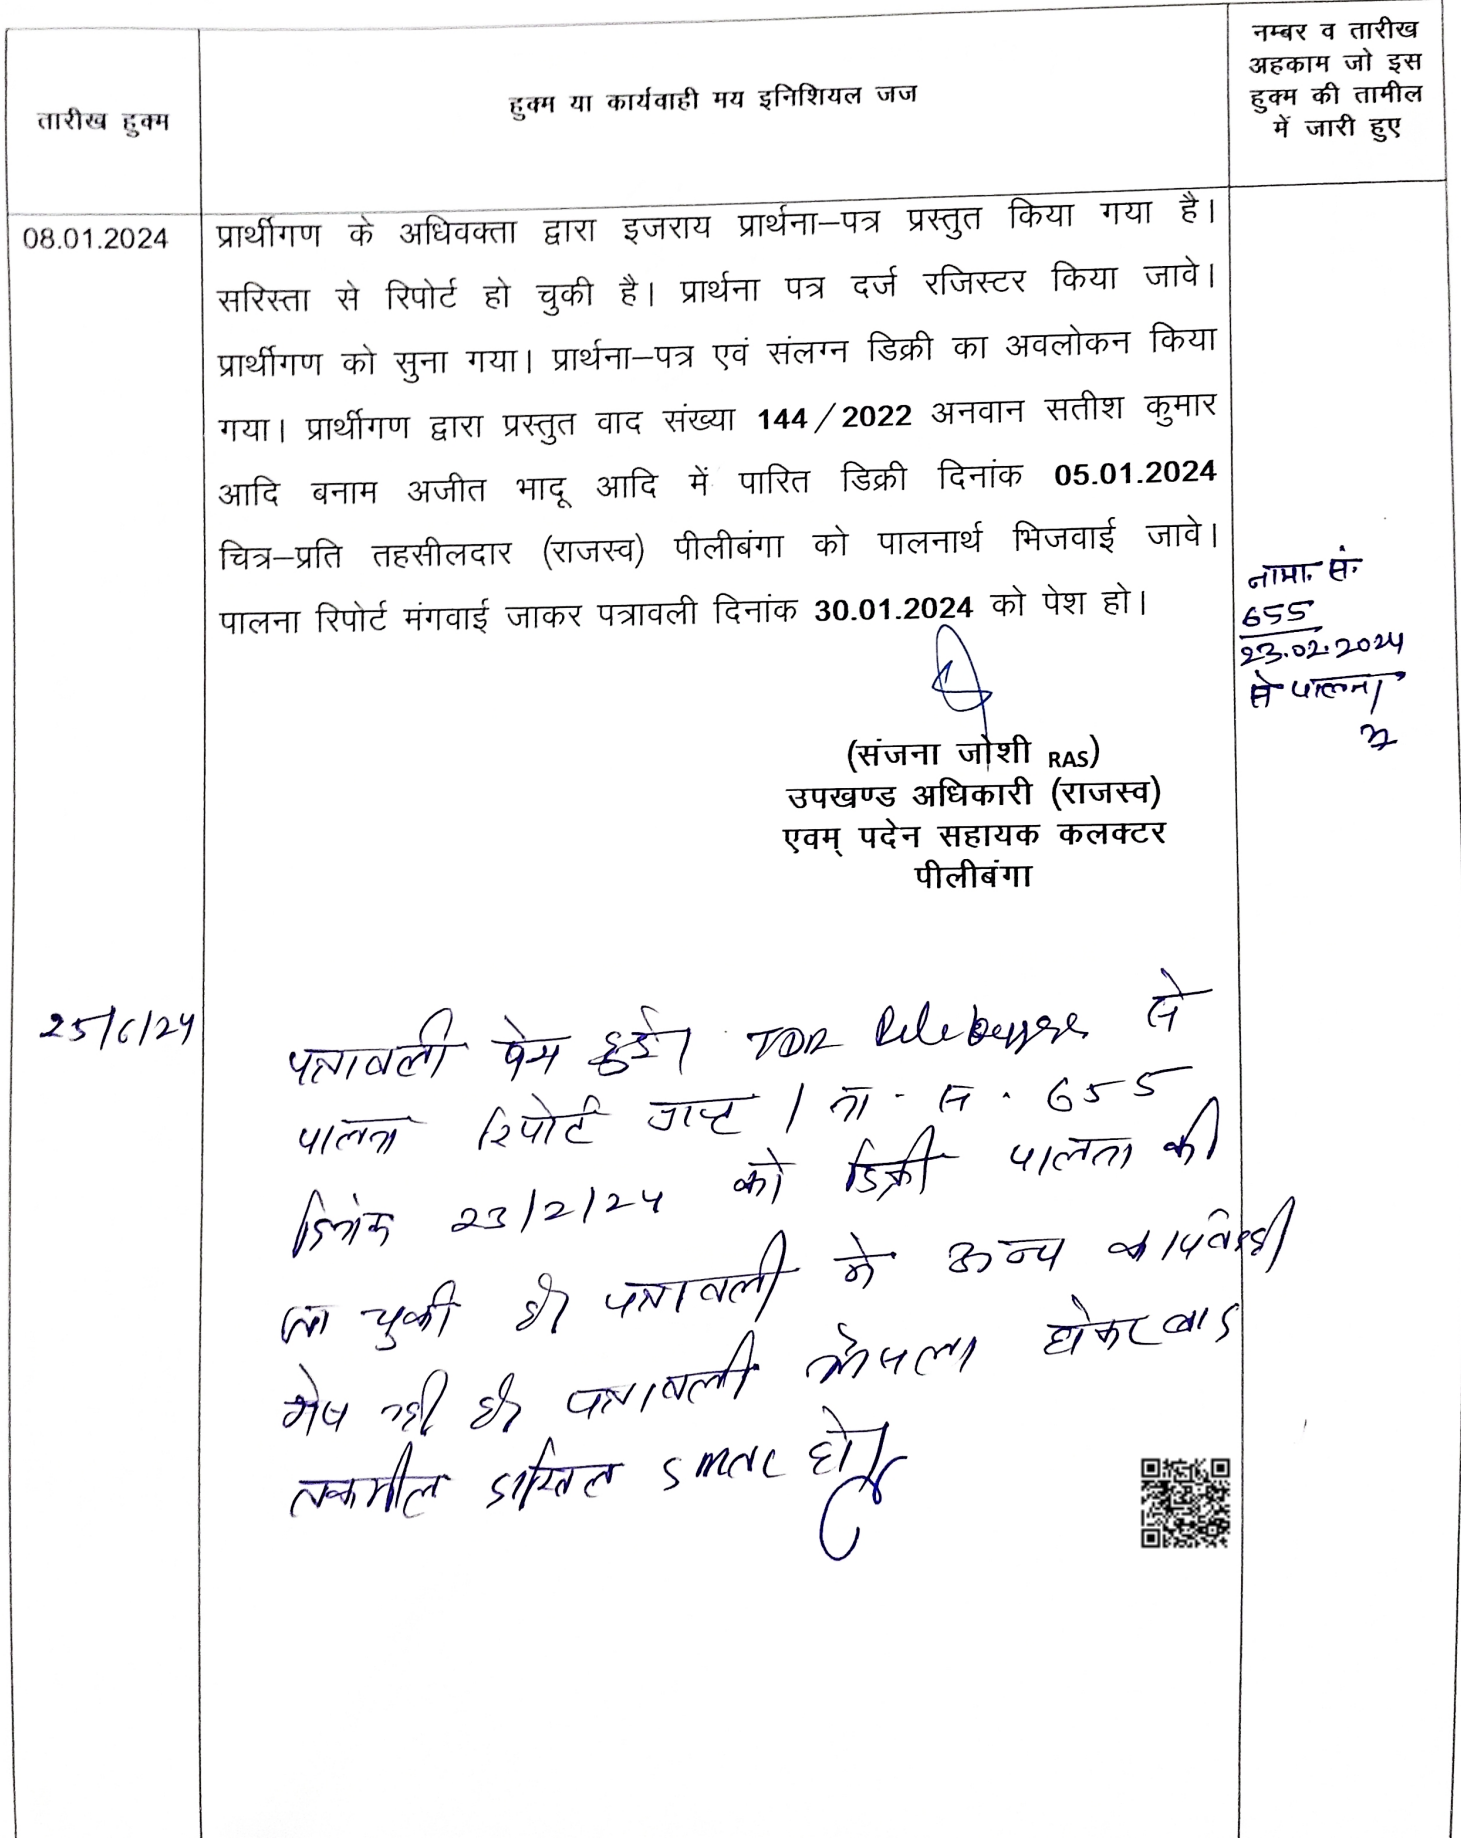 तारीख हुक्म
हुक्म या कार्यवाही मय इनिशियल जज
नम्बर व तारीख
अहकाम जो इस
हुक्म की तामील
में जारी हुए
08.01.2024
प्रार्थीगण के अधिवक्ता द्वारा इजराय प्रार्थना–पत्र प्रस्तुत किया गया है।
सरिस्ता से रिपोर्ट हो चुकी है। प्रार्थना पत्र दर्ज रजिस्टर किया जावे।
प्रार्थीगण को सुना गया। प्रार्थना–पत्र एवं संलग्न डिक्री का अवलोकन किया
गया। प्रार्थीगण द्वारा प्रस्तुत वाद संख्या 144/2022 अनवान सतीश कुमार
आदि बनाम अजीत भादू आदि में पारित डिक्री दिनांक 05.01.2024
चित्र–प्रति तहसीलदार (राजस्व) पीलीबंगा को पालनार्थ भिजवाई जावे।
पालना रिपोर्ट मंगवाई जाकर पत्रावली दिनांक 30.01.2024 को पेश हो।
नामा. सं.
655
23.02.2024
से पालना
(संजना जोशी RAS)
उपखण्ड अधिकारी (राजस्व)
एवम् पदेन सहायक कलक्टर
पीलीबंगा
25/6/24
पत्रावली पेश हुई। TDR से
पालना रिपोर्ट प्राप्त। ना. स. 655
दिनांक 23/2/24 को डिक्री पालना की
जा चुकी है। पत्रावली में अन्य कार्यवाही
शेष नहीं है। पत्रावली फैसला होकर बाद
तकमील दाखिल दफ्तर हो।